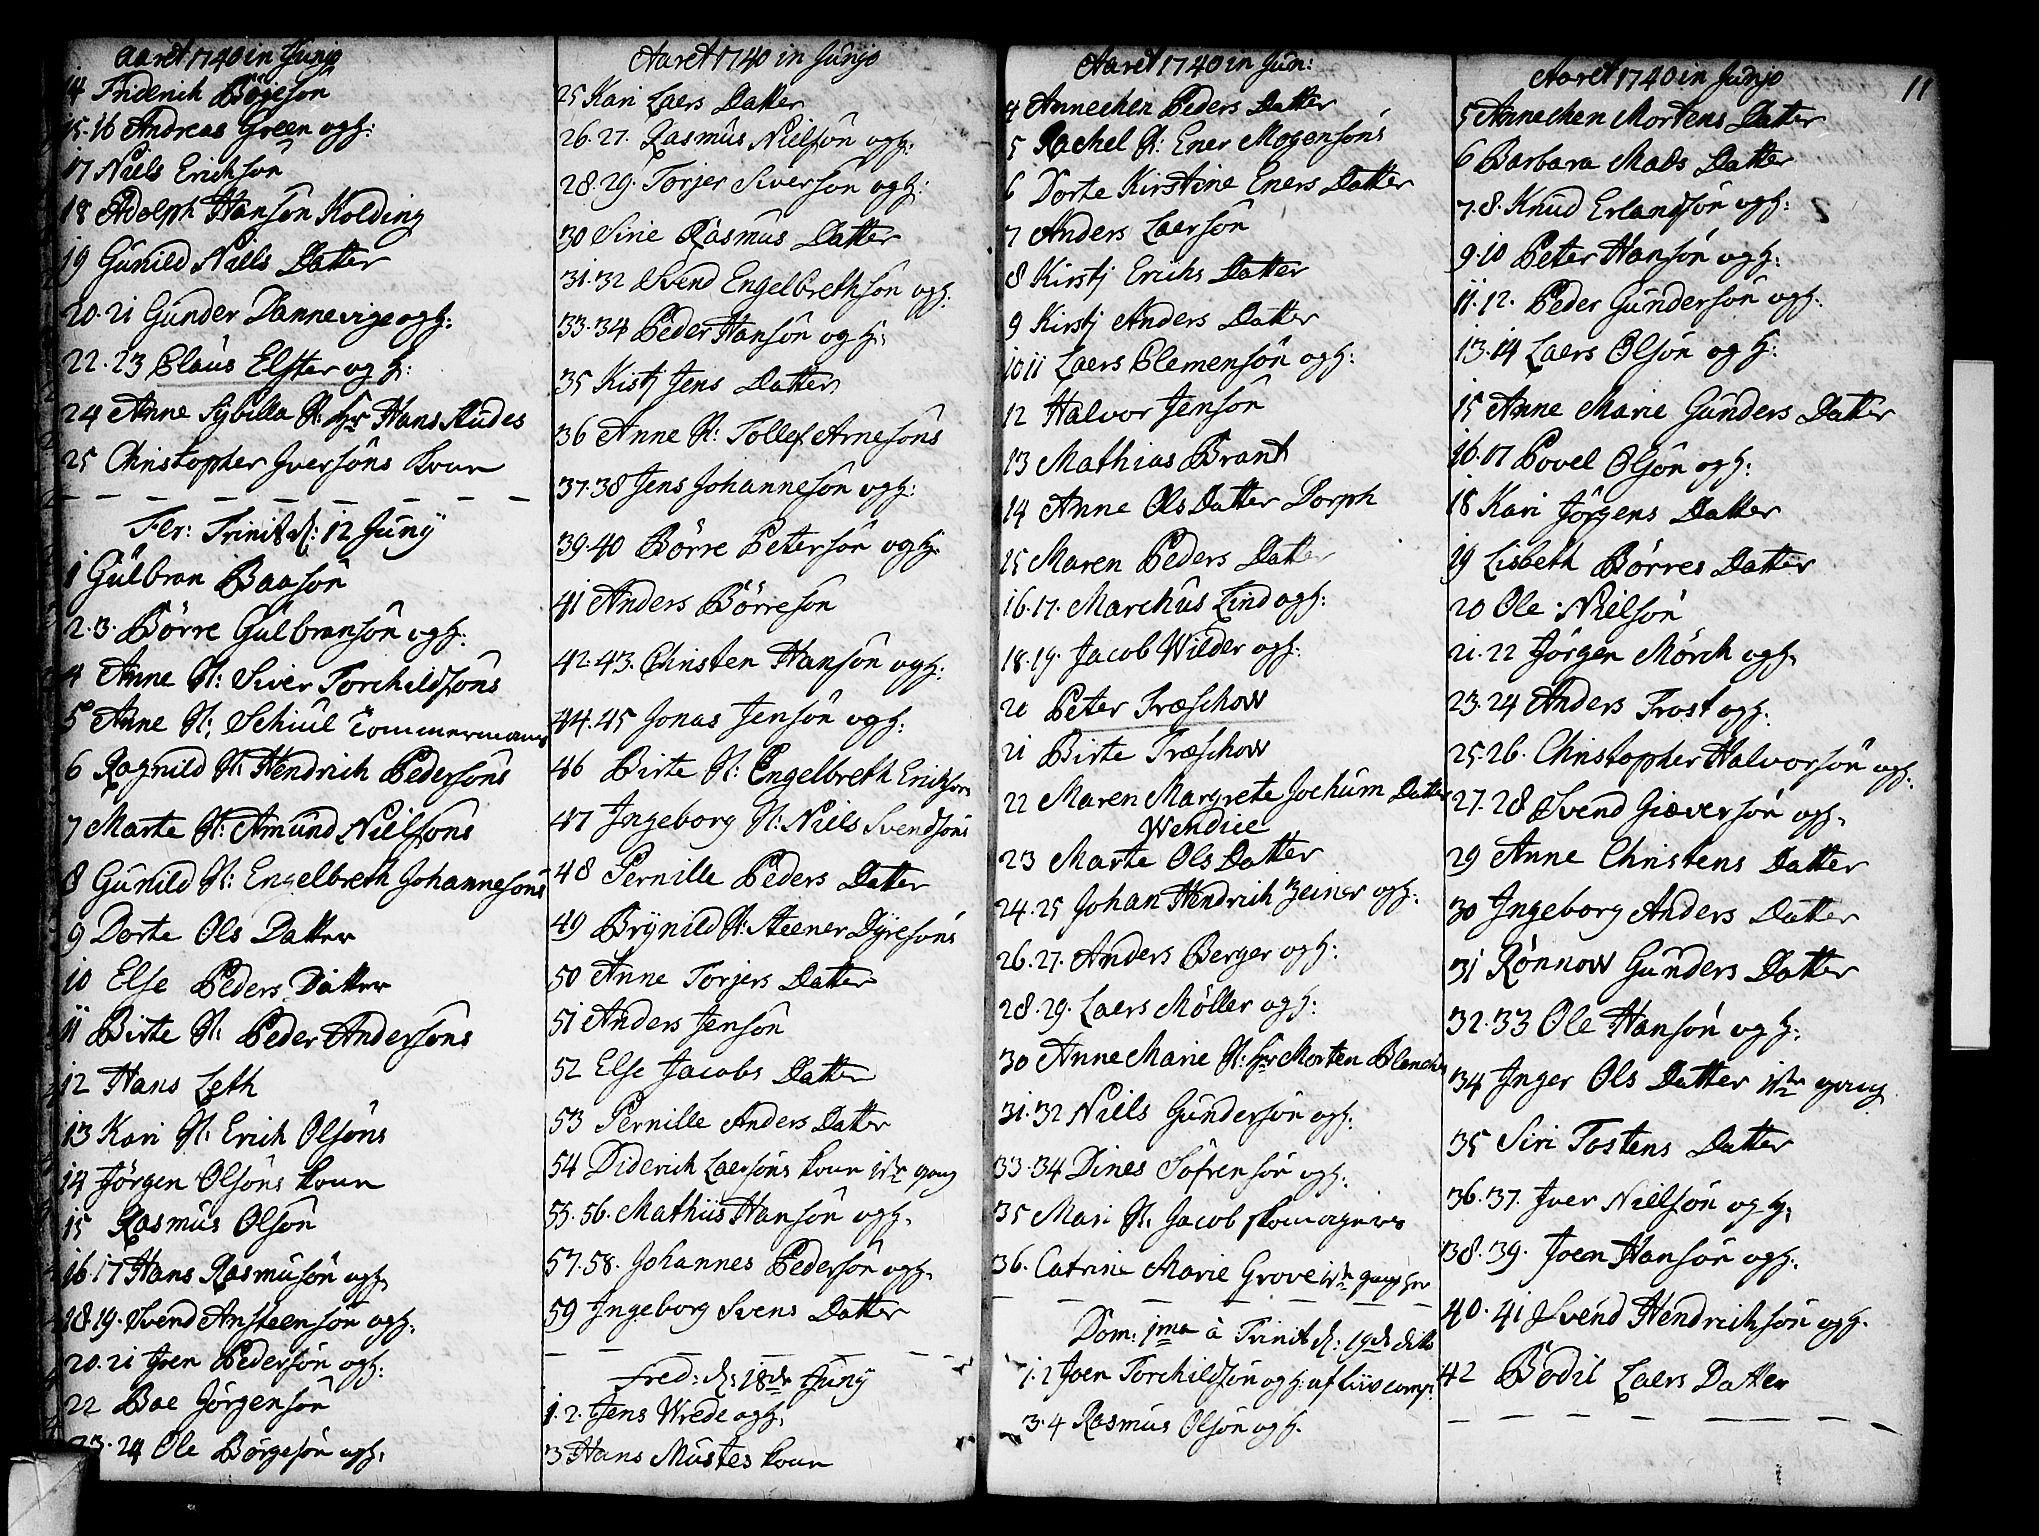 Aaret 1740 in Junjo
14 Friderich Böyeson
15.16 Andreas Green og H:
17 Niels Erichson
18 Adolph Hanson Kolding
19 Gunild Niels Datter
20.21 Gunder Dannevige og H:
22.23 Claus Elster og H:
24 Anne Sybilla N: Hr Hans Studes
25 Christopher Iversons koun
Fer: Trinit d: 12 Junÿ
1 Gulbran Baason
2.3. Börre Gulbranson og H:
4 Anne N: Siver Torchildsons
5 Anne N: Schiul Tommermans
6 Ragnild N: Hendrich Pedersons
7 Marte N: Amund Nielsons
8 Gunild N: Engelbreth Johannesons
9 Dorte Ols Datter
10 Else Peders Datter
11 Birte N: Peder Andersons
12 Hans Leth
13 Kari N: Erich Olsons
14 Jörgen Olsons koun
15 Rasmus Olson
16.17 Hans Rasmuson og H:
18.19. Svend Ansteenson og H:
20.21 Joen Pederson og H:
22 Boe Jörgenson
23.24 Ole Börgeson og H:
Aaret 1740 in Junjo
25 Kari Laers Datter
26.27. Rasmus Nielson og H:
28.29. Torjer Siverson og H:
30 Sirie Rasmus Datter
31.32 Svend Engelbrethson og H:
33.34 Peder Hanson og H:
35 Kistj Jens Datter
36 Anne N: Tollef Arnesons
37.38 Jens Johanneson og H:
39.40 Börre Peterson og H:
41 Anders Börreson
42.43. Christen Hanson og H:
44.45 Jonas Jenson og H:
46 Birte N: Engelbreth Erichson
47 Ingeborg N: Niels Svendsons
48 Pernille Peders Datter
49 Brÿnild N: Steener Dÿresons
50 Anne Torjers Datter
51 Anders Jenson
52 Else Jacobs Datter
53 Pernille Anders Datter
54 Diderich Laersons koun 1ste gang
55.56. Mathiis Hanson og H:
57.58. Johannes Pederson og H:
59 Ingeborg Svens Datter
Fred: d: 18de Junÿ
1.2. Jens Wrede og H:
3 Hans Mustes koun
Aaret 1740 in Jun:
4 Annechen Peders Datter
5 Rachel N: Ener Mogensons
6 Dorte Kirstine Eners Datter
7 Anders Laerson
8 Kirstj Erichs Datter
9 Kirstj Anders Datter
10 11 Laers Clemenson og H:
12 Halvor Jenson
13 Mathias Brant
14 Anne Ols Datter Dorph
15 Maren Peders Datter
16.17. Marchus Lind og H:
18.19. Jacob Wilder og H:
20 Peter Træschow
21 Birte Træschow
22 Maren Margrete Jochum Datter
Wendice
23 Marte Ols Datter
24.25 Johan Hendrich Zeiner og H:
26.27. Anders Berger og H:
28.29. Laers Möller og H:
30 Anne Marie N: Hr Morten Blenches
31.32 Niels Gunderson og H:
33.34 Dines Sofrenson og H:
35 Mari N: Jacob skomagers
36. Catrine Marie Grove 1ste gang
Dom: 1ma à Trinit d: 19de dito
1.2 Joen Torchildson og H: af Liv comp:
3.4 Rasmus Olson og H:
Aaret 1740 in Junjo
11
5 Annechen Mortens Datter
6 Barbara Mads Datter
7.8. Knud Erlandson og H:
9.10 Peter Hanson og H:
11.12. Peder Gunderson og H:
13.14 Laers Olson og H:
15 Anne Marie Gunders Datter
16.17 Povel Olson og H:
18 Kari Jörgens Datter
19 Lisbeth Börres Datter
20 Ole Nielson
21.22 Jörgen Mörch og H:
23.24 Anders Frost og H:
25.26. Christopher Halvorson og H:
27.28 Svend Giæverson og H:
29 Anne Christens Datter
30 Ingeborg Anders Datter
31 Rönnow Gunders Datter
32.33 Ole Hanson og H:
34 Inger Ols Datter 1ste gang
35 Siri Tostens Datter
36.37. Iver Nielson og H:
38.39. Joen Hanson og H:
40.41 Svend Hendrichson og H:
42 Bodil Laers Datter